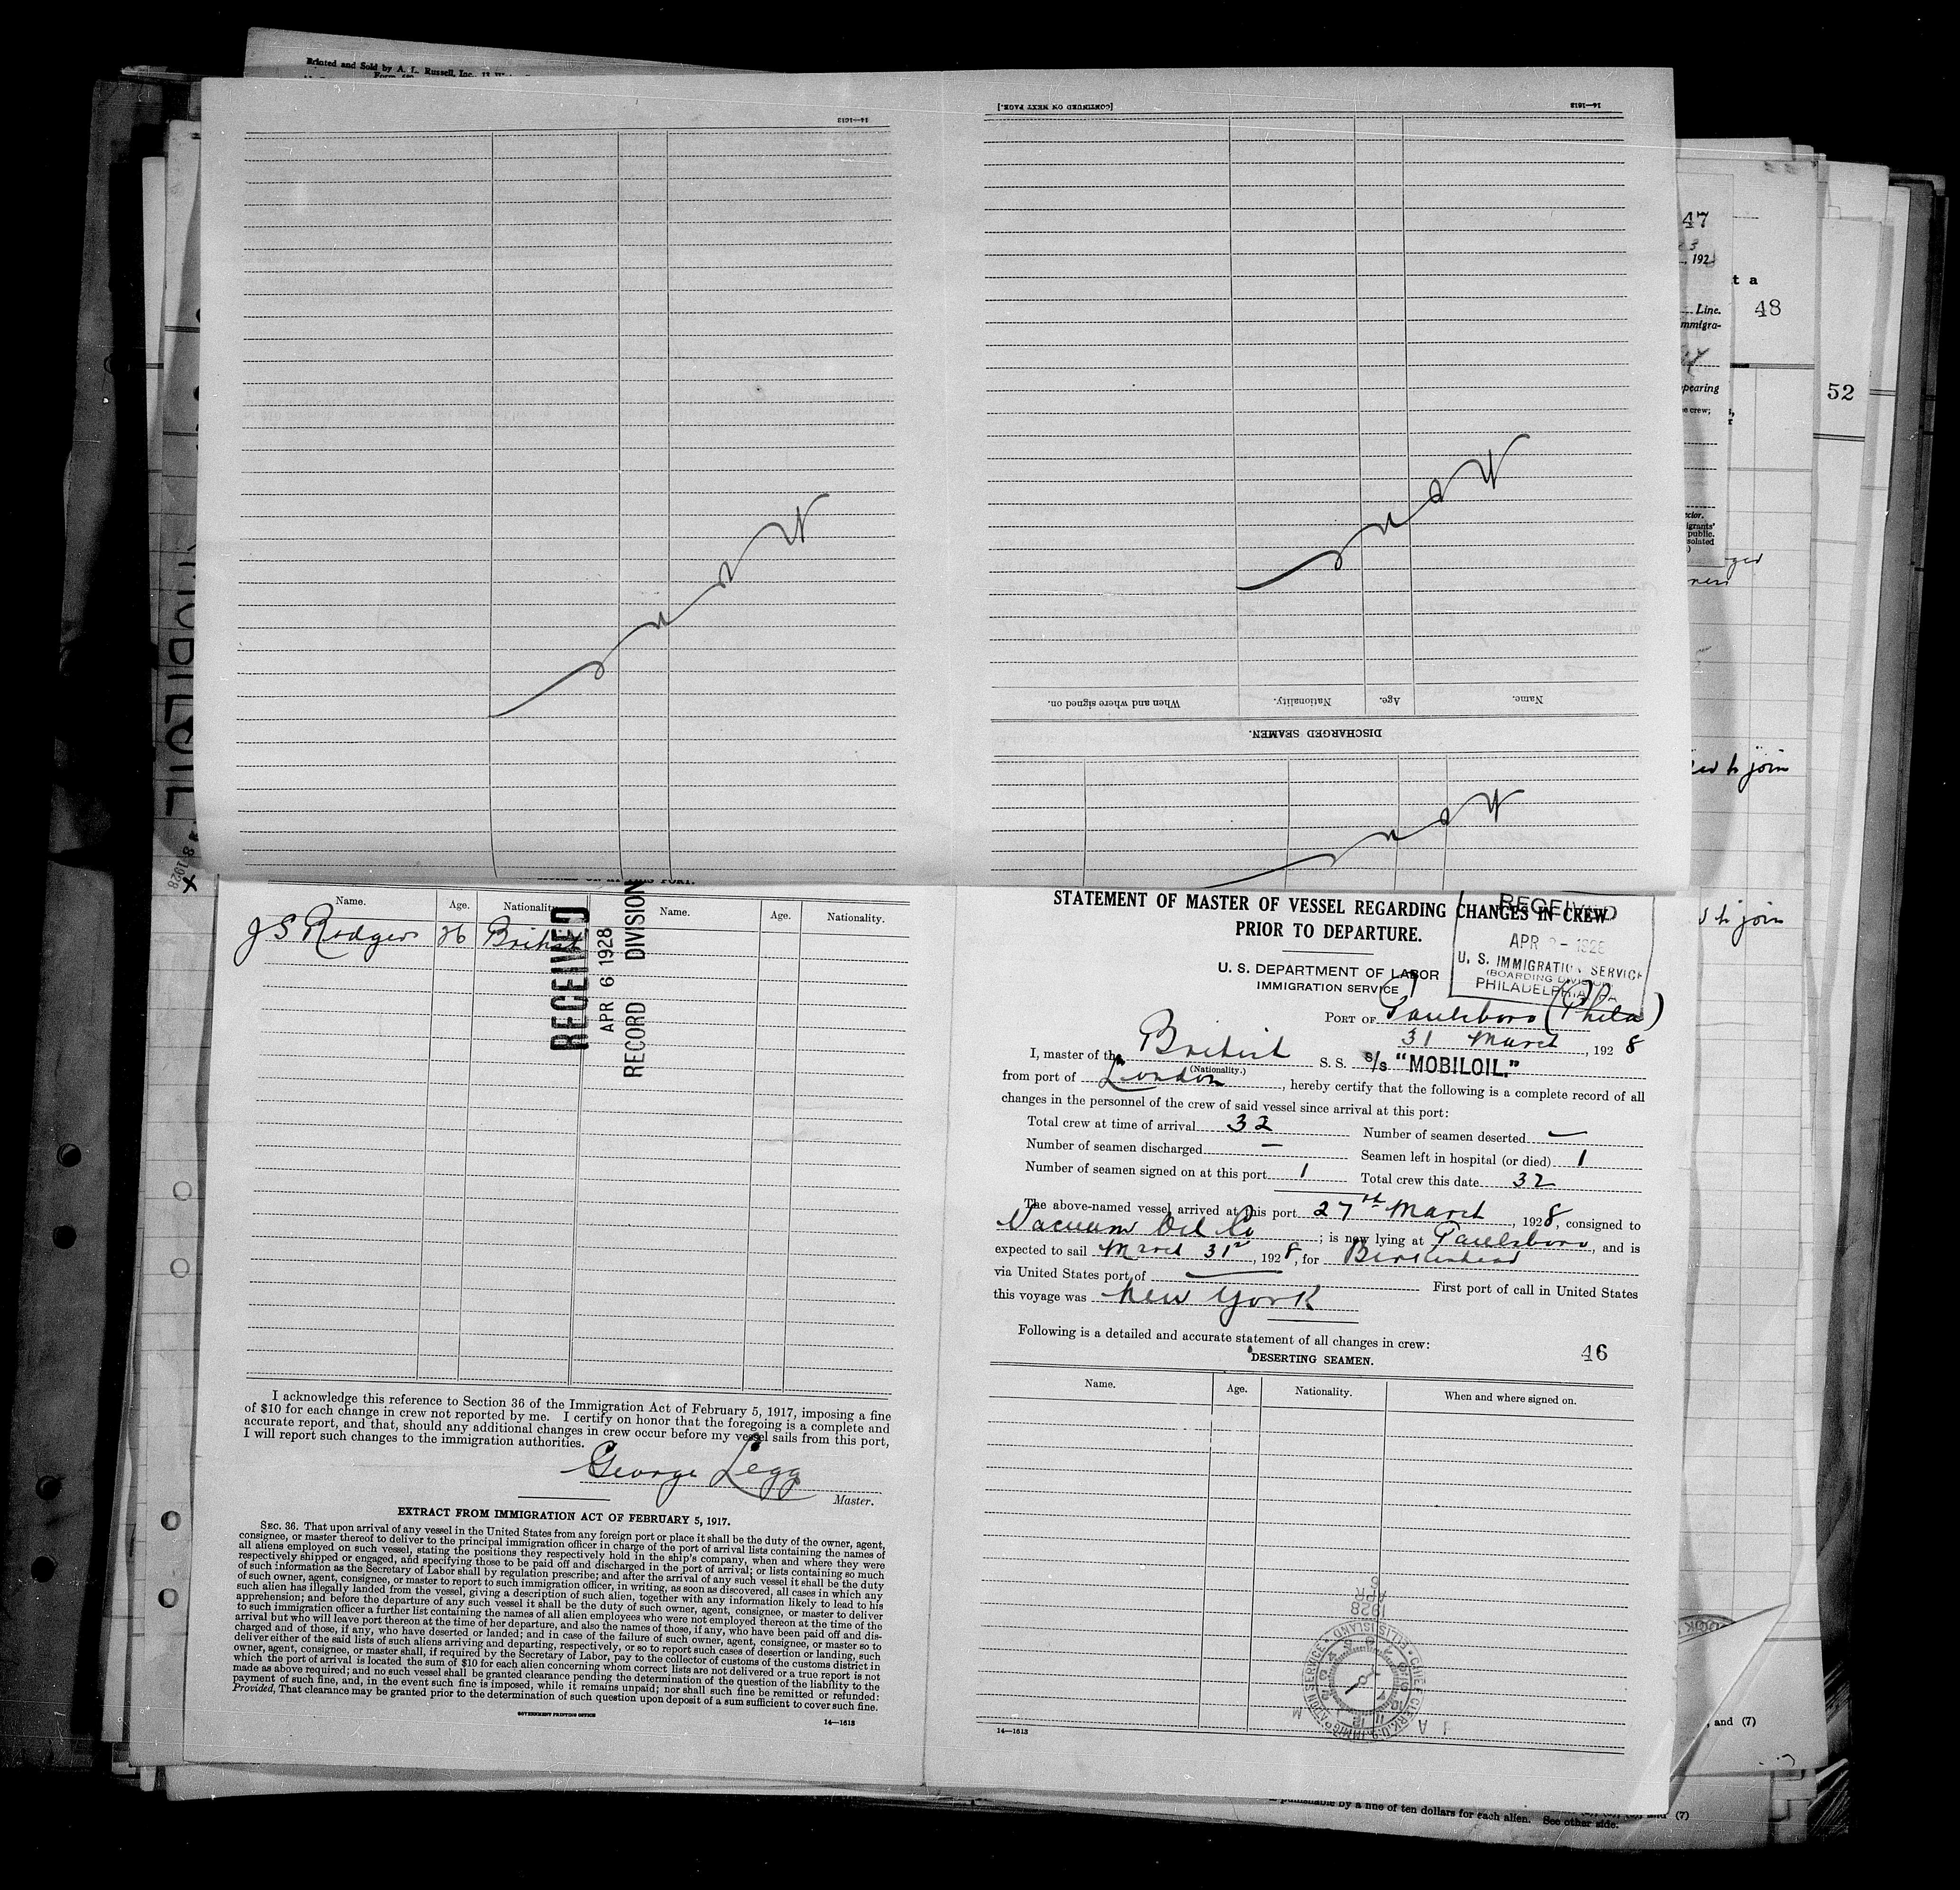 Printed and Sold by A. L. Russell, Inc.,
14—1613
[CONTINUED ON NEXT PAGE.]
14—1613
None
None
When and where signed on.
Nationality.
Age.
Name.
DISCHARGED SEAMEN.
None
Name.
Age.
Nationality.
Name.
Age.
Nationality.
J S Rodgers 26 British
RECEIVED
APR 6 1928
RECORD DIVISION
I acknowledge this reference to Section 36 of the Immigration Act of February 5, 1917, imposing a fine
of $10 for each change in crew not reported by me. I certify on honor that the foregoing is a complete and
accurate report, and that, should any additional changes in crew occur before my vessel sails from this port,
I will report such changes to the immigration authorities.
George Legg
Master.
EXTRACT FROM IMMIGRATION ACT OF FEBRUARY 5, 1917.
SEC. 36. That upon arrival of any vessel in the United States from any foreign port or place it shall be the duty of the owner, agent,
consignee, or master thereof to deliver to the principal immigration officer in charge of the port of arrival lists containing the names of
all aliens employed on such vessel, stating the positions they respectively hold in the ship's company, when and where they were
respectively shipped or engaged, and specifying those to be paid off and discharged in the port of arrival; or lists containing so much
of such information as the Secretary of Labor shall by regulation prescribe; and after the arrival of any such vessel it shall be the duty
of such owner, agent, consignee, or master to report to such immigration officer, in writing, as soon as discovered, all cases in which any
such alien has illegally landed from the vessel, giving a description of such alien, together with any information likely to lead to his
apprehension; and before the departure of any such vessel it shall be the duty of such owner, agent, consignee, or master to deliver
to such immigration officer a further list containing the names of all alien employees who were not employed thereon at the time of the
arrival but who will leave port thereon at the time of her departure, and also the names of those, if any, who have been paid off and dis-
charged and of those, if any, who have deserted or landed; and in case of the failure of such owner, agent, consignee, or master so to
deliver either of the said lists of such aliens arriving and departing, respectively, or so to report such cases of desertion or landing, such
owner, agent, consignee, or master shall, if required by the Secretary of Labor, pay to the collector of customs of the customs district in
which the port of arrival is located the sum of $10 for each alien concerning whom correct lists are not delivered or a true report is not
made as above required; and no such vessel shall be granted clearance pending the determination of the question of the liability to the
payment of such fine, and, in the event such fine is imposed, while it remains unpaid; nor shall such fine be remitted or refunded:
Provided, That clearance may be granted prior to the determination of such question upon deposit of a sum sufficient to cover such fine.
GOVERNMENT PRINTING OFFICE
14—1613
STATEMENT OF MASTER OF VESSEL REGARDING CHANGES IN CREW
PRIOR TO DEPARTURE.
RECEIVED
APR - 1928
U. S. IMMIGRATION SERVICE
(BOARDING DIVISION)
PHILADELPHIA, PA
U. S. DEPARTMENT OF LABOR
IMMIGRATION SERVICE
PORT OF Paulsboro (Phila)
31 March, 1928
I, master of the British S. S. s/s "MOBILOIL."
(Nationality.)
from port of London, hereby certify that the following is a complete record of all
changes in the personnel of the crew of said vessel since arrival at this port:
Total crew at time of arrival 32 Number of seamen deserted —
Number of seamen discharged — Seamen left in hospital (or died) 1
Number of seamen signed on at this port 1 Total crew this date 32
The above-named vessel arrived at this port 27th March, 1928, consigned to
Vacuum Oil Co; is now lying at Paulsboro, and is
expected to sail March 31st, 1928, for Birkenhead
via United States port of — First port of call in United States
this voyage was New York
Following is a detailed and accurate statement of all changes in crew:
46
DESERTING SEAMEN.
Name.
Age.
Nationality.
When and where signed on.
1928
APR
6
CHIEF CLERK, U.S. IMMIGRATION SERVICE
ELLIS ISLAND
14—1613
47
, 192
t a
Line.
48
mmigra-
pearing
52
MOBILOIL
1928
to join
to join
, and (7)
punishable by a fine of ten dollars for each alien. See other side.
and (7)